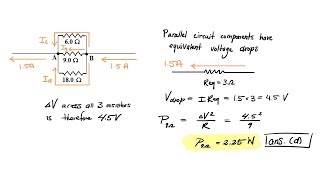 I₆
6.0 Ω
1.5A
A
9.0 Ω
B
1.5 A
18.0 Ω
ΔV across all 3 resistors
is therefore 4.5V
Parallel circuit components have
equivalent voltage drops
1.5A
Req = 3Ω
Vdrop = I Req = 1.5 × 3 = 4.5 V
P9Ω = ΔV² / R = 4.5² / 9
P9Ω = 2.25 W ans. (d)